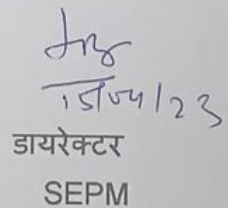 15/04/23
डायरेक्टर
SEPM